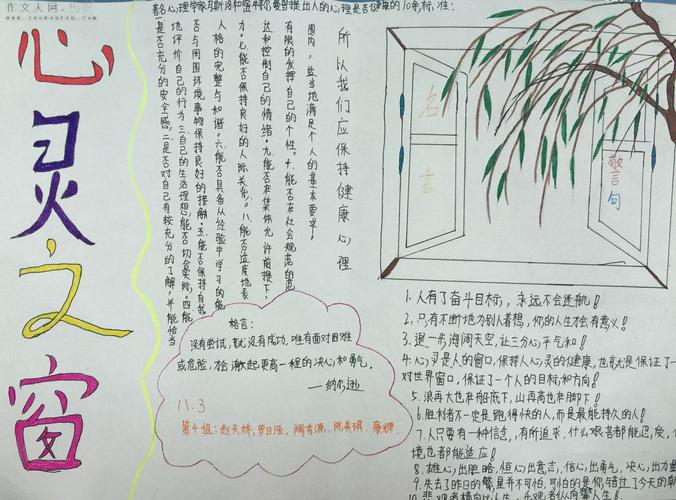 作文人网
www.zuowenren.com
心灵之窗
著名心理学家马斯洛和密特尔曼曾提出人的心理是否健康的10条标准:
一.是否充分的安全感,二.是否对自己有较充分的了解,并能恰当
地评价自己的行为.三.自己的生活理想能否切合实际.四.能
否与周围环境事物保持良好的接触.五.能否保持自我
人格的完整与和谐.六.能否具备从经验中学习的能
力.七.能否保持良好的人际关系.八.能否适度地表
达和控制自己的情绪.九.能否在集体允许前提下,
有限的发挥自己的个性.十.能否在社会规范的范
围内,适当地满足个人的基本要求.
所以我们应保持健康心理
名言
警句
格言:
没有尝试,就没有成功,唯有面对困难
或危险,才会激起更高一程的决心和勇气.
11.3
第4组:赵天娇,罗日浩,陶青源,陈美琪,康辉
1.人有了奋斗目标,永远不会迷航!
2.只有不断地为别人着想,你的人生才会有意义!
3.退一步海阔天空,让三分心平气和!
4.心灵是人的窗口,保持人心灵的健康,也就是保证一
对世界窗口,保证了一个人的目标和方向!
5.浪再大也在船底下,山再高也在脚下!
6.胜利者不一定是跑得快的人,而是最能持久的人!
7.人只要有一种信念,有所追求,什么艰苦都能忍受,
境也都能适应!
8.雄心出胆略,恒心出意志,信心出勇气,决心出力量
9.失去了昨日的繁星并不可怕,可怕的是你错过了今天的朝